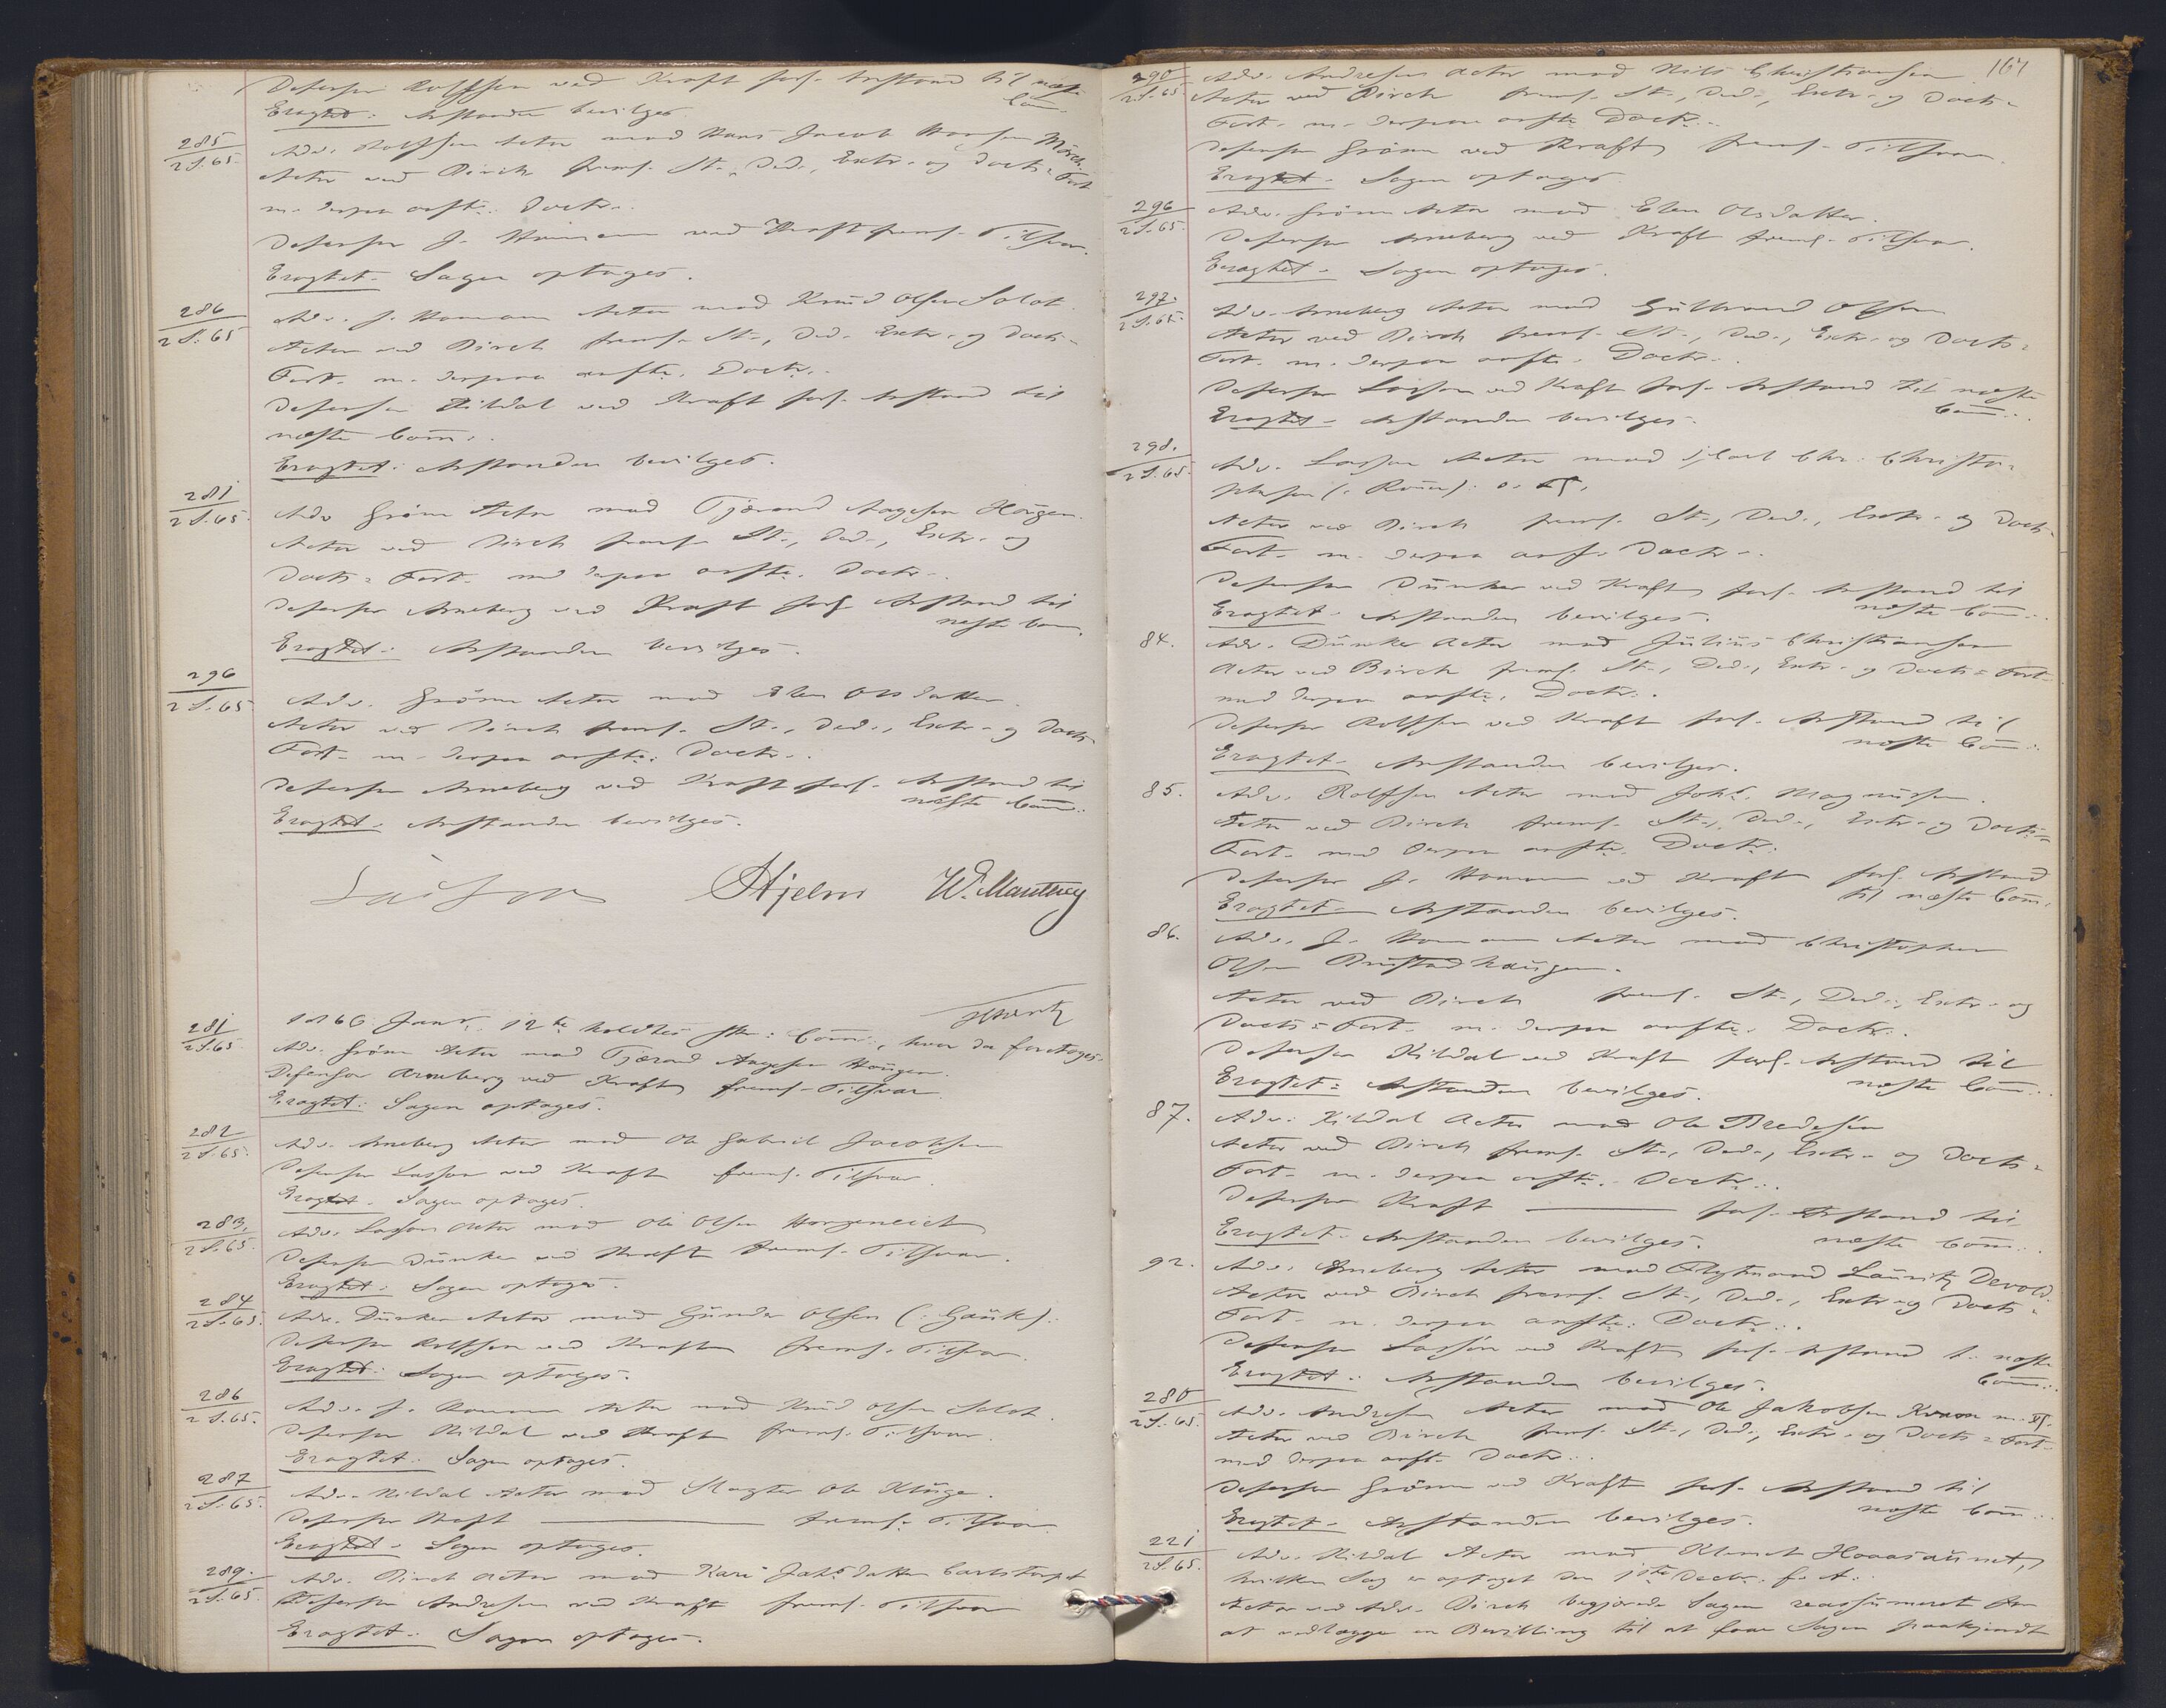 Defensor Rolffsen ved Kraft forl. Anstand til næste
Com.
Eragtet: Anstanden bevilges.
285
2 S. 65
Adv. Rolffsen Actor mod Hans Jacob Hansen Mörch
Actor ved Birch freml. St., Ded., Extr. og Docts= Fort.
m. derpaa anfte. Doctr..
Defensor J. Homann ved Kraft freml. Tilsvar.
Eragtet. Sagen optages.
286
2 S. 65
Adv. J. Homann Actor mod Knud Olsen Solot
Actor ved Birch freml. St., Ded. Extr. og Docts=
Fort. m. derpaa anfte. Doctr..
Defensor Kildal ved Kraft forl. Anstand til
næste Com:.
Eragtet: Anstanden bevilges.
281
2 S. 65
Adv Grönn Actor mod Tjærand Aagesen Hougen.
Actor ved Birch freml. St., Ded., Extr. og
Docts= Fort. med derpaa anfte. Doctr..
Defensor Arneberg ved Kraft forl. Anstand til
næste Com.
Eragtet: Anstanden bevilges.
296
2 S. 65
Adv. Grönn Actor mod Elen Olsdatter.
Actor ved Birch freml. St., Ded., Extr. og Docts
Fort. m. derpaa anfte. Doctr..
Defensor Arneberg ved Kraft forl. Anstand til
næste Com:.
Eragtet. Anstanden bevilges.
Lasson Hjelm W. Manthey
281
2 S. 65
1866 Janr. 12te holdtes Com:, hvor da foretoges.
Adv. Grönn Actor mod Tjærand Aagesen Hougen.
Defensor Arneberg ved Kraft freml. Tilsvar.
Eragtet: Sagen optages.
282
2 S. 65.
Adv. Arneberg Actor mod Ole Gabriel Jacobsen
Defensor Lasson ved Kraft freml. Tilsvar.
Eragtet. Sagen optages.
283.
2 S. 65.
Adv. Lasson Actor mod Ole Olsen
Defensor Dünker ved Kraft freml. Tilsvar.
Eragtet: Sagen optages.
284
2 S. 65.
Adv. Dünker Actor mod Gunder Olsen (: Gauk):
Defensor Rolffsen ved Kraft freml. Tilsvar.
Eragtet: Sagen optages.
286
2 S. 65.
Adv. J. Homann Actor mod Knud Olsen Solot.
Defensor Kildal ved Kraft freml. Tilsvar.
Eragtet: Sagen optages.
287
2 S. 65.
Adv. Kildal Actor mod Slagter Ole Kluge.
Defensor Kraft freml. Tilsvar.
Eragtet. Sagen optages.
289.
2 S. 65.
Adv. Birch Actor mod Kari Jahsdatter
Defensor Andresen ved Kraft freml. Tilsvar
Eragtet: Sagen optages.
161
290
2 S. 65.
Adv. Andresen Actor mod Nils Christiansen
Actor ved Birch freml. St., Ded., Extr. og Docts=
Fort. m. derpaa anfte Doctr..
Defensor Grönn ved Kraft freml. Tilsvar.
Eragtet. Sagen optages.
296
2 S. 65.
Adv. Grönn Actor mod Elen Olsdatter.
Defensor Arneberg ved Kraft freml. Tilsvar.
Eragtet. Sagen optages.
297.
2 S. 65.
Adv. Arneberg Actor mod Gulbrand Olsen
Actor ved Birch freml. St., Ded., Extr. og Docts=
Fort. m. derpaa anfte. Doctr..
Defensor Lasson ved Kraft forl. Anstand til næste
Com:.
Eragtet. Anstanden bevilges.
298.
2 S. 65
Adv. Lasson Actor mod Carl Chr. Christo=
phersen
Actor ved Birch freml. St., Ded., Extr. og Docts
Fort. m. derpaa anf. Doctr..
Defensor Dünker ved Kraft forl. Anstand til
næste Com:.
Eragtet. Anstanden bevilges.
84.
Adv. Dünker Actor mod Julius Christiansen
Actor ved Birch freml. St., Ded., Extr. og Docts= Fort.
med derpaa anfte. Doctr..
Defensor Rolffsen ved Kraft forl. Anstand til
næste Com:.
Eragtet. Anstanden bevilges.
85.
Adv. Rolffsen Actor mod Johs. Magnussen.
Actor ved Birch freml. St., Ded., Extr. og Docts=
Fort. med derpaa anfte. Doctr.
Defensor J. Homann ved Kraft forl. Anstand
til næste Com:
Eragtet. Anstanden bevilges.
86.
Adv. J. Homann Actor mod Christopher
Olsen Brustadhaugen.
Actor ved Birch freml. St., Ded., Extr. og
Docts= Fort. m. derpaa anfte. Doctr..
Defensor Kildal ved Kraft forl. Anstand til
næste Com:.
Eragtet= Anstanden bevilges.
87.
Adv. Kildal Actor mod Ole Bredesen
Actor ved Birch freml. St., Ded., Extr. og Docts=
Fort. m. derpaa anfte. Doctr..
Defensor Kraft forl. Anstand til
næste Com:.
Eragtet. Anstanden bevilges.
92.
Adv. Arneberg Actor mod Lauritz Devold.
Actor ved Birch freml. St., Ded., Extr. og Docts=
Fort. m. derpaa anfte. Doctr..
Defensor Lasson ved Kraft forl. Anstand t. næste
Com:.
Eragtet: Anstanden bevilges.
280
2 S. 65.
Adv. Andresen Actor mod Ole Jakobsen Kvam m. fl.
Actor ved Birch freml. St., Ded., Extr. og Docts= Fort.
med derpaa anft. Doctr..
Defensor Grönn ved Kraft forl. Anstand til
næste Com:.
Eragtet. Anstanden bevilges.
221
2 S. 65.
Adv. Kildal Actor mod Klemet Haarsaunet,
hvilken Sag er optaget den Decbr. f. A.
Actor ved Adv. Birch begjærede Sagen reassumeret for
at vedlægge en Bevilling til at faae Sagen paakjendt